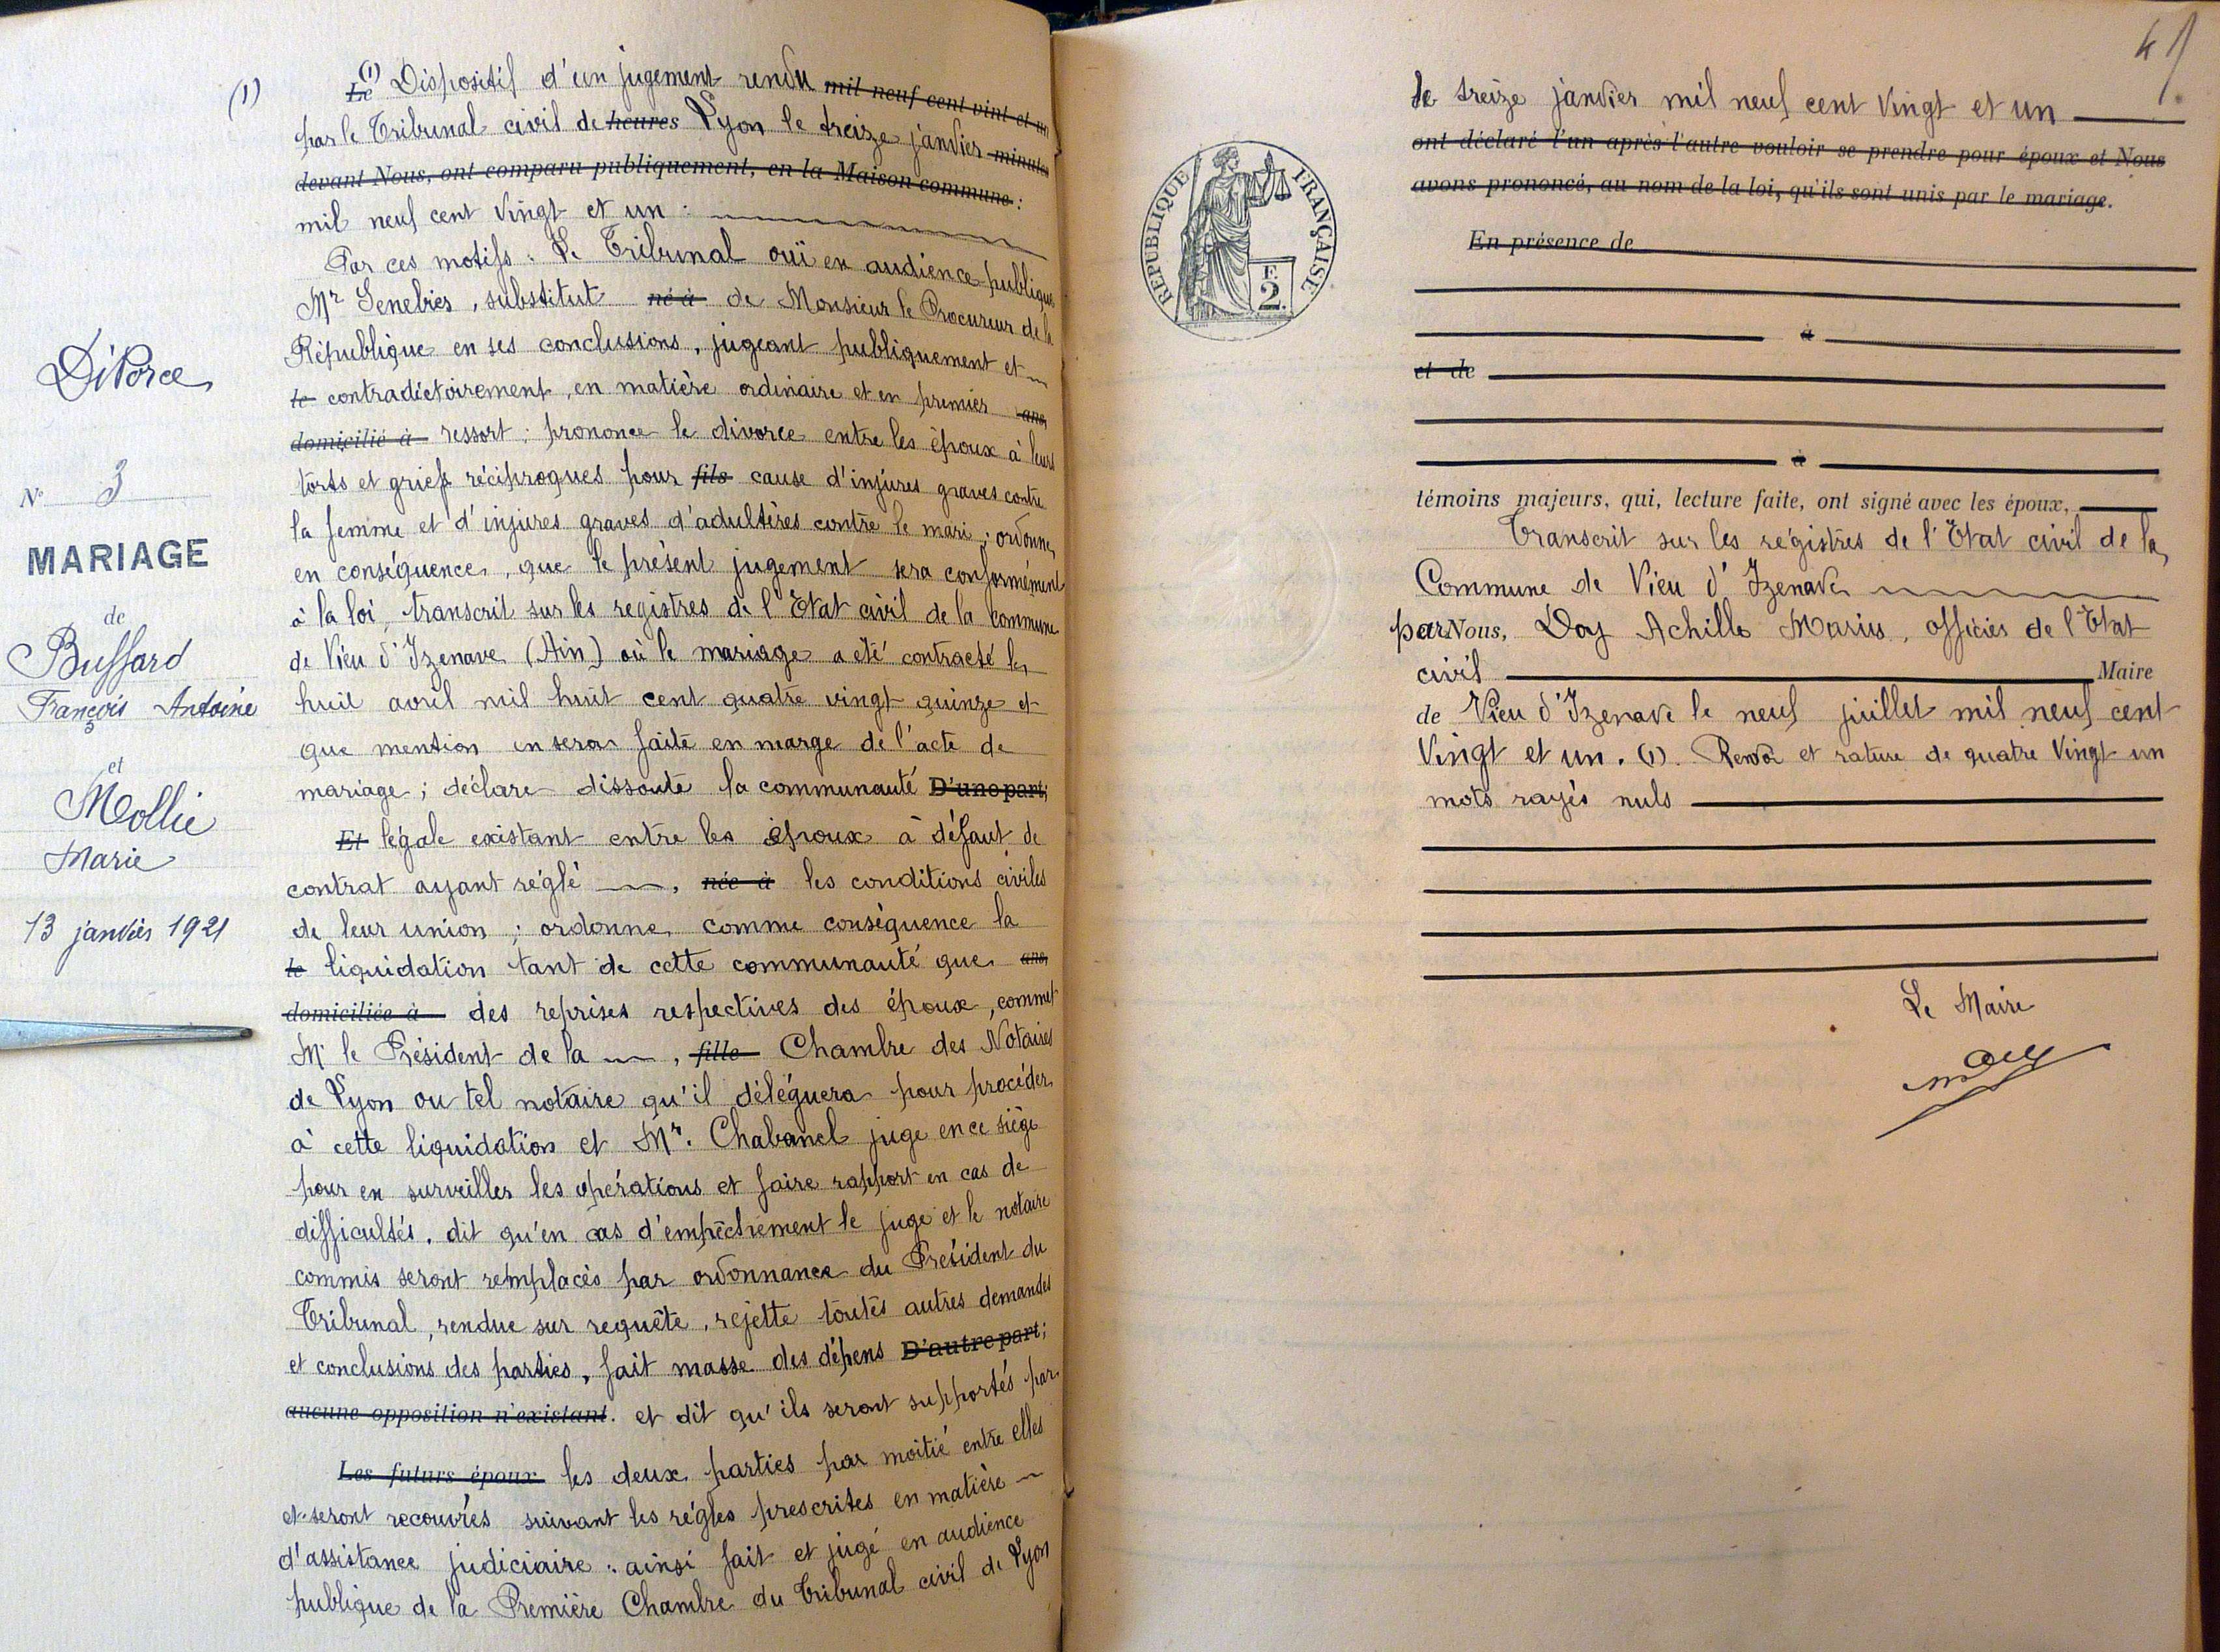 (1)
Le (1) Dispositif d'un jugement rendu mil neuf cent vint et un
par le Tribunal civil de heures Lyon le treize janvier minutes
devant Nous, ont comparu publiquement, en la Maison commune :
mil neuf cent vingt et un :
Par ces motifs : Le Tribunal ouï en audience publique
Mr Senebier, substitut né à de Monsieur le Procureur de la
République en ses conclusions, jugeant publiquement et
le contradictoirement, en matière ordinaire et en premier ans,
domicilié à ressort : prononce le divorce entre les époux à leurs
torts et griefs réciproques pour fils cause d'injures graves contre
la femme et d'injures graves d'adultères contre le mari ; ordonne,
en conséquence, que le présent jugement sera conformément
à la loi, transcrit sur les registres de l'Etat civil de la commune
de Vieu d'Izenave (Ain) où le mariage a été contracté le
huit avril mil huit cent quatre vingt quinze et
que mention en sera faite en marge de l'acte de
mariage ; déclare dissoute la communauté D'une part;
Et légale existant entre les époux à défaut de
contrat ayant réglé , née à les conditions civiles
de leur union ; ordonne comme conséquence la
le liquidation tant de cette communauté que ans,
domiciliée à des reprises respectives des époux, commet
Mr le Président de la , fille Chambre des Notaires
de Lyon ou tel notaire qu'il déléguera pour procéder
à cette liquidation et Mr. Chabanel juge en ce siège
pour en surveiller les opérations et faire rapport en cas de
difficultés. dit qu'en cas d'empêchement le juge et le notaire
commis seront remplacés par ordonnance du Président du
Tribunal, rendue sur requête, rejette toutes autres demandes
et conclusions des parties, fait masse des dépens D'autre part;
aucune opposition n'existant. et dit qu'ils seront supportés par
Les futurs époux les deux parties par moitié entre elles
et seront recouvrés suivant les règles prescrites en matière
d'assistance judiciaire : ainsi fait et jugé en audience
publique de la Première Chambre du Tribunal civil de Lyon
Divorce
N° 3
MARIAGE
de
Buffard
François Antoine
et
Mollie
Marie
13 janvier 1921
REPUBLIQUE FRANÇAISE
F.
2.
le treize janvier mil neuf cent vingt et un
ont déclaré l'un après l'autre vouloir se prendre pour époux et Nous
avons prononcé, au nom de la loi, qu'ils sont unis par le mariage.
En présence de
à
et de
à
témoins majeurs, qui, lecture faite, ont signé avec les époux,
Transcrit sur les régistres de l'Etat civil de la
Commune de Vieu d'Izenave
par Nous, Doy Achille Marius, officier de l'Etat
civil Maire
de Vieu d'Izenave le neuf juillet mil neuf cent
Vingt et un. (1). Renvoi et rature de quatre Vingt un
mots rayés nuls
Le Maire